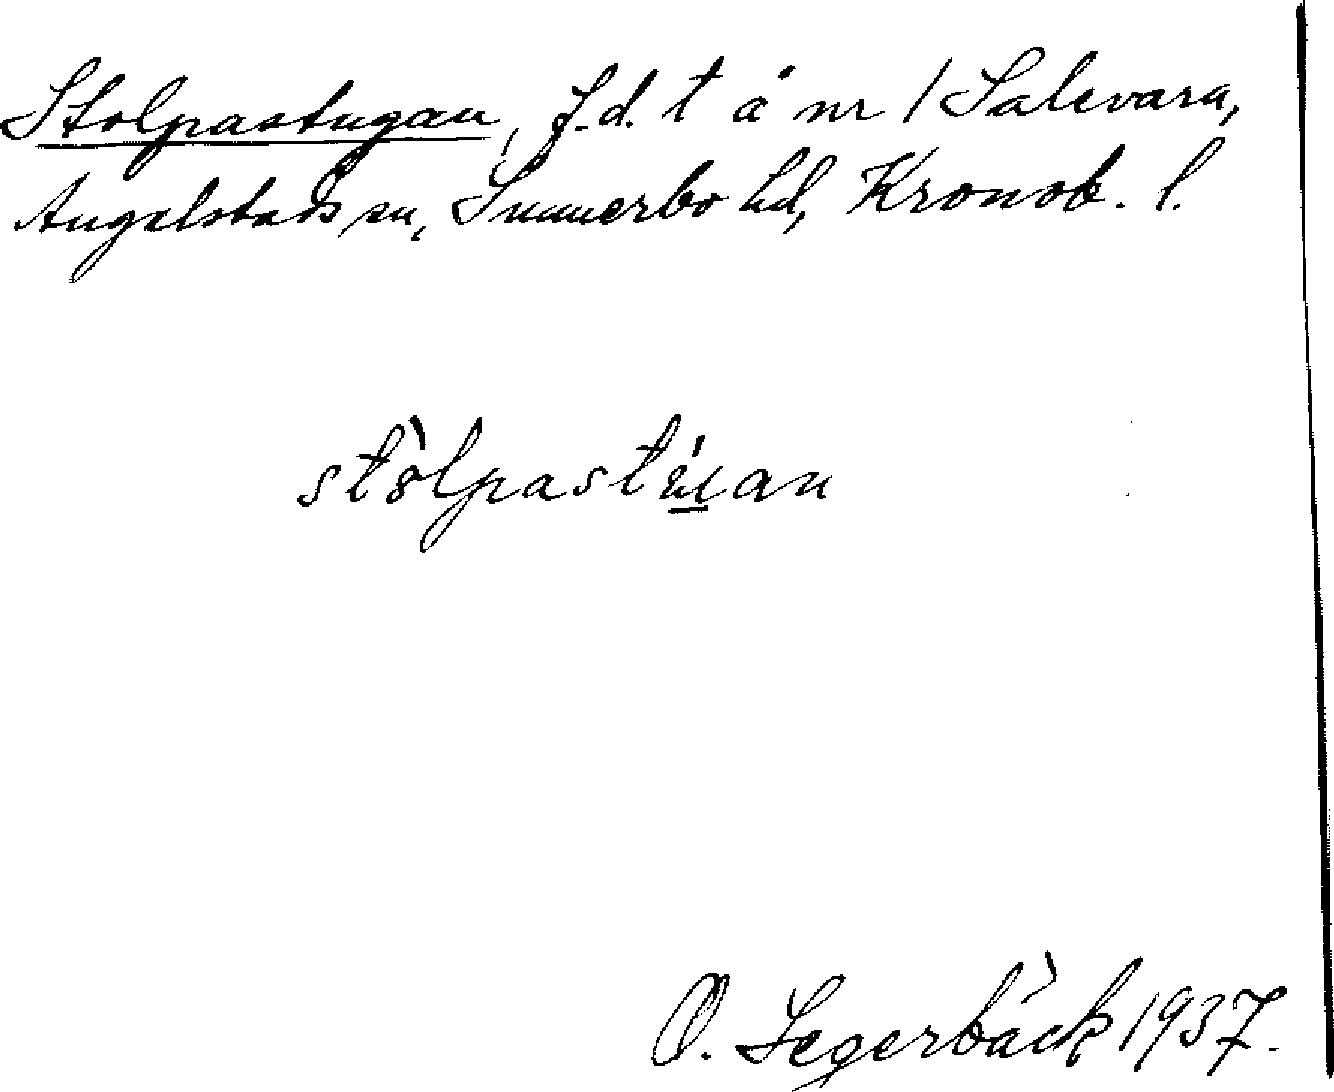 Stolpastugan, f.d. t å nr 1 Salevara,
Angelstads sn, Sunnerbo hd, Kronob. l.
stòlpastúan
O. Segerbäck 1937.